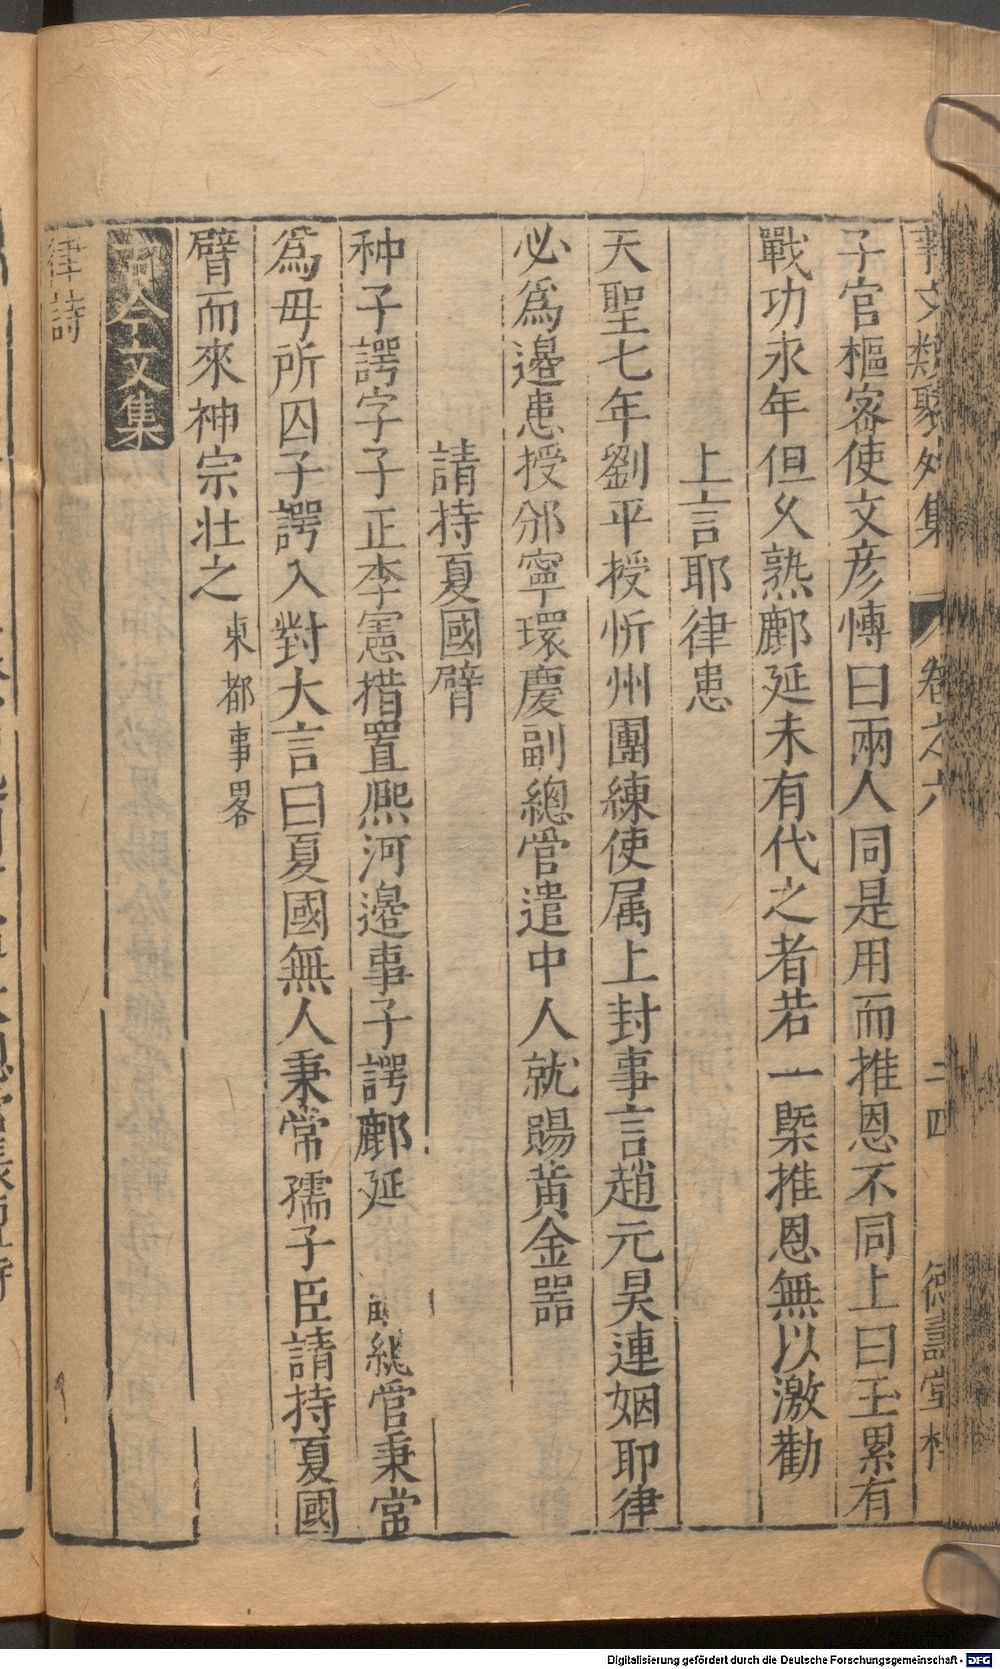 事文類聚外集 卷之六 二四 德壽堂梓
子官樞密使文彦愽曰兩人同是用而推恩不同上曰玊累有
戰功永年但乆熟鄜延未有代之者若一槩推恩無以激勸
上言耶律患
天聖七年劉平授忻州團練使属上封事言趙元昊連姻耶律
必爲邊患授邠寧環慶副總管遣中人就賜黄金噐
請持夏國臂
种子諤字子正李憲措置熈河邊事子諤鄜延 総管秉常
爲母所囚子諤入對大言曰夏國無人秉常孺子臣請持夏國
臂而來神宗壯之 東都事畧
古今文集
律詩
Digitalisierung gefördert durch die Deutsche Forschungsgemeinschaft - DFG